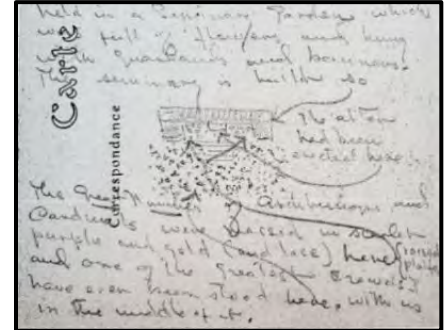 held in a Seminary Garden which
was full of flowers and hung
with garlands and banners.
The seminary is built so
Carte
Correspondance
The altar
had been
erected here
The great number of Archbishops and
Cardinals were massed in scarlet
purple and gold (and lace) here
raised
and one of the greatest crowds I
have ever seen stood here, with us
in the middle of it.